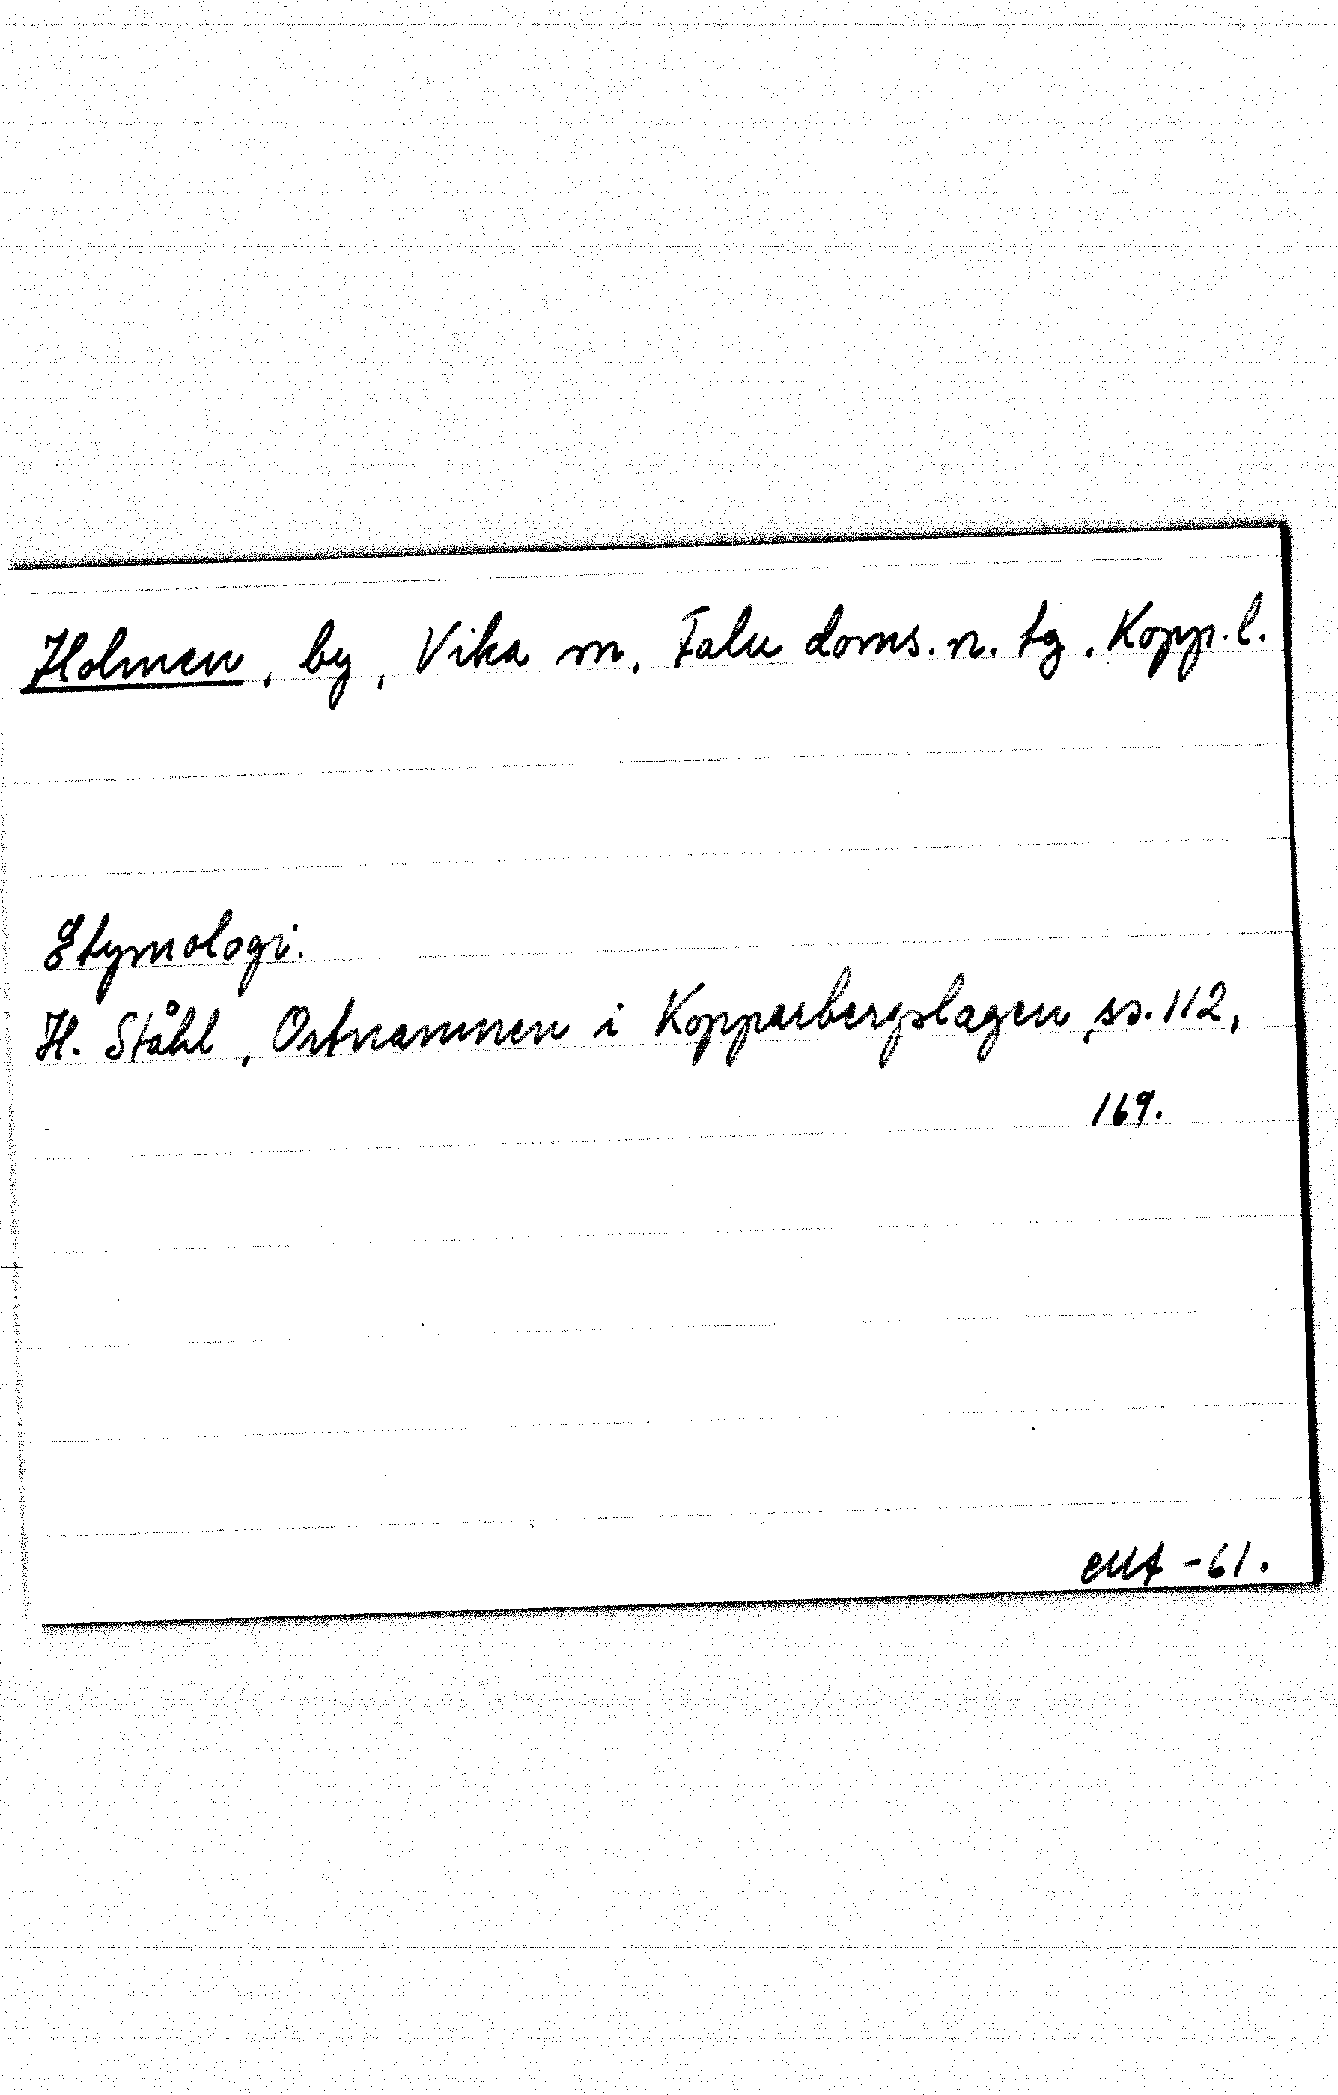 Holmen, by, Vika sn, Falu doms. n. tg. Kopp. l.
Etymologi.
H. Ståhl, Ortnamnen i Kopparbergslagen, ss. 112,
169.
-61.